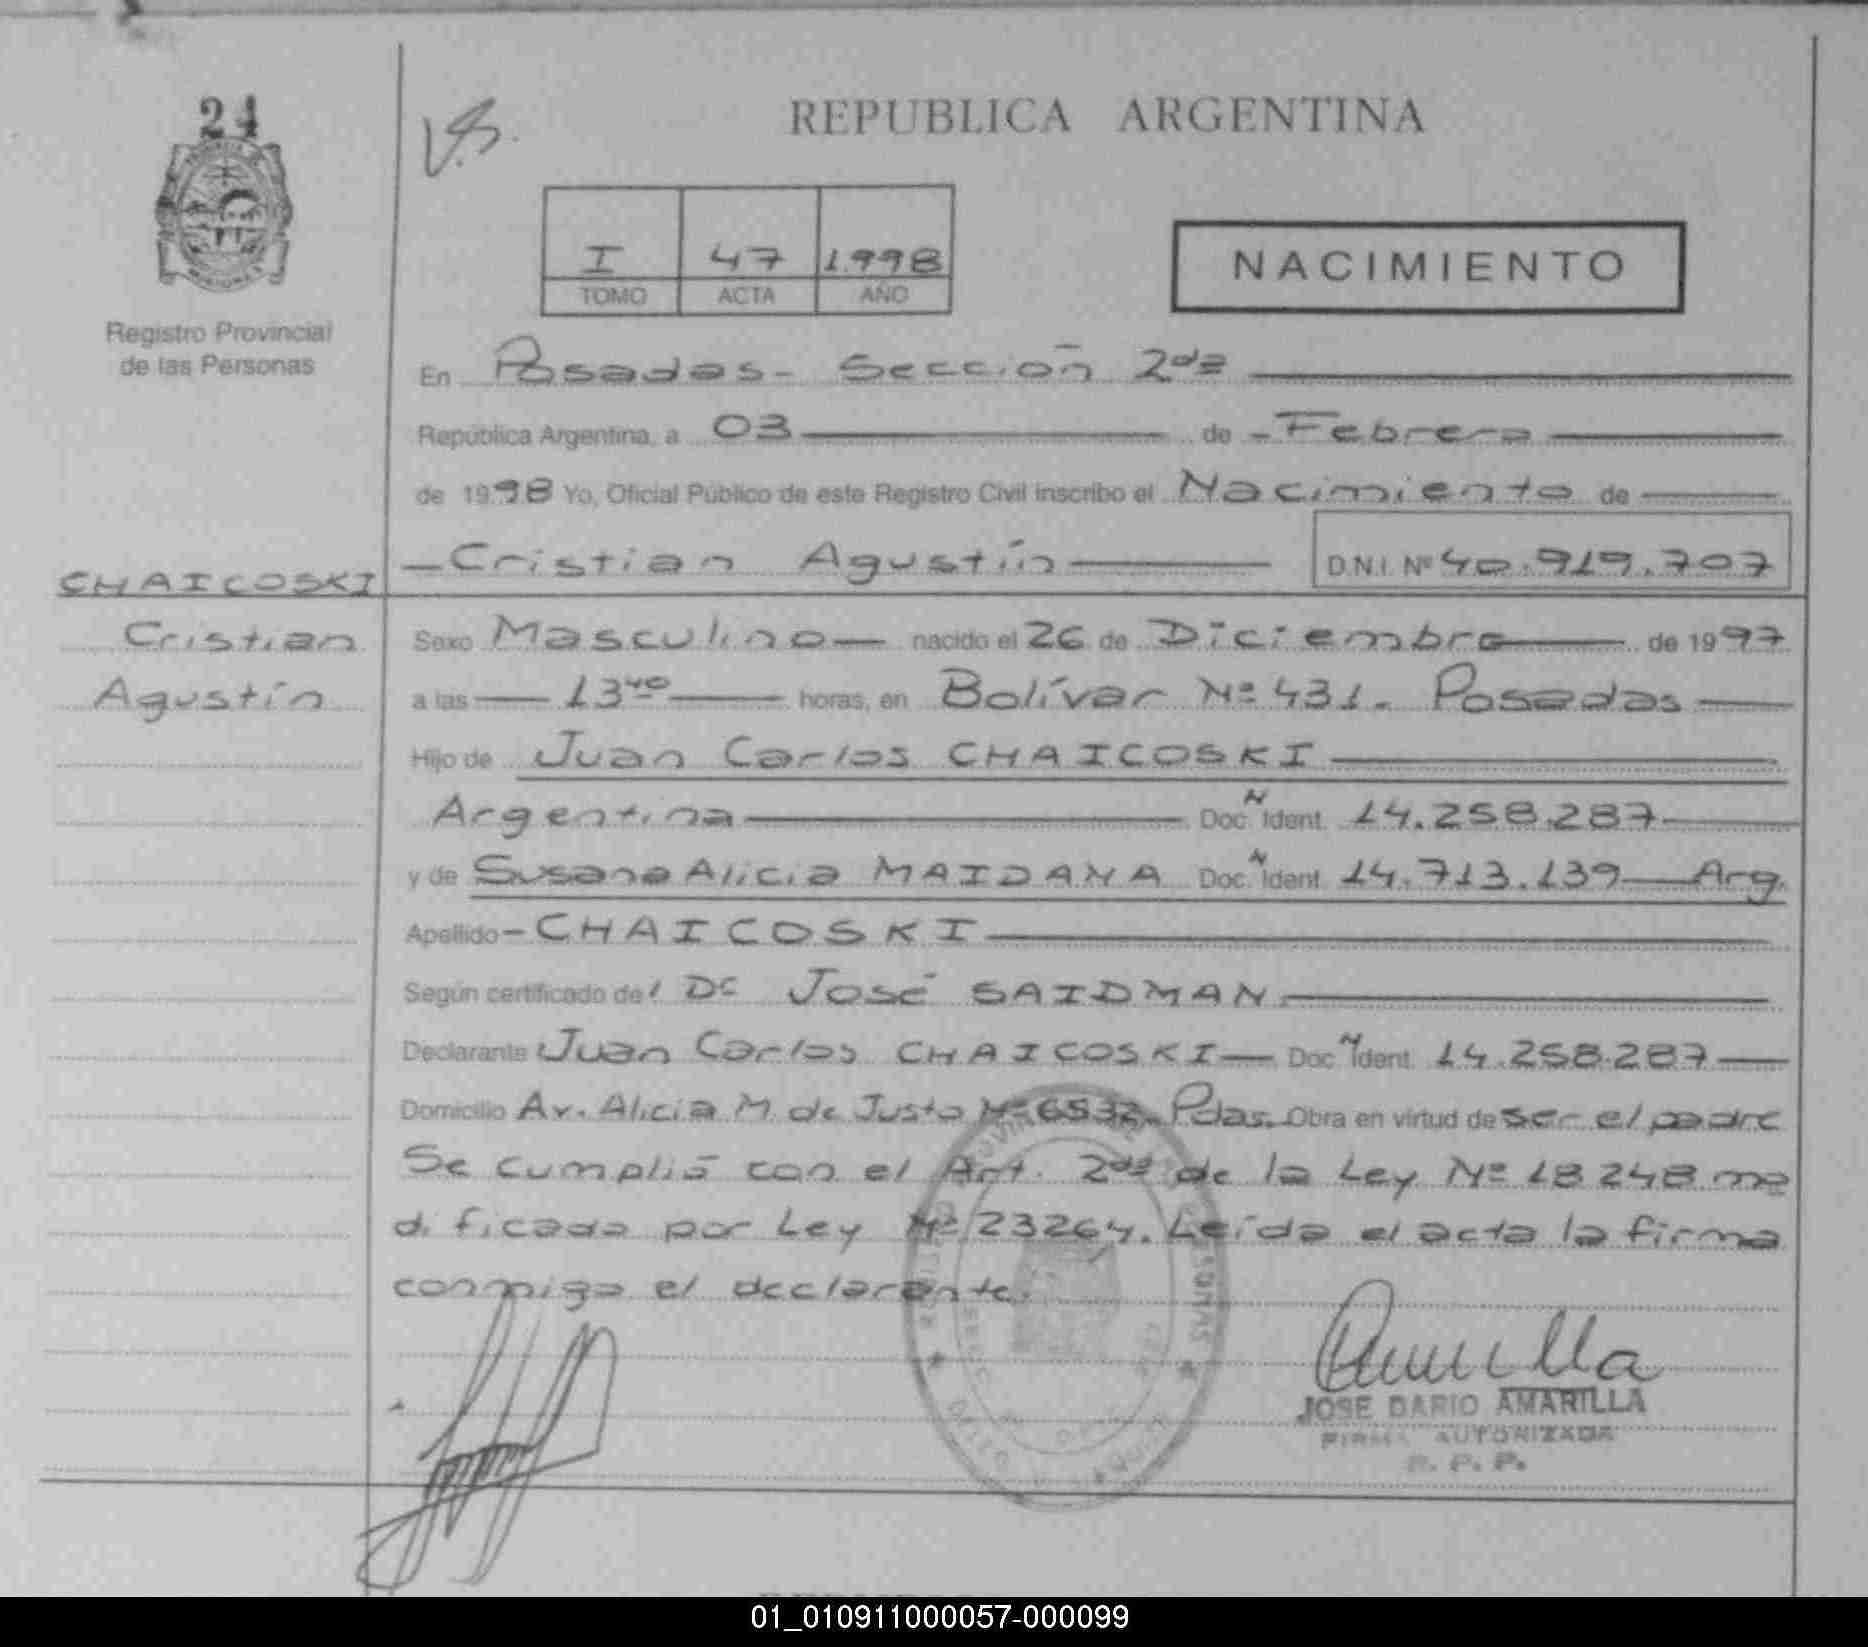 24
V.B.
REPUBLICA ARGENTINA
I 47 1998
TOMO ACTA AÑO
NACIMIENTO
Registro Provincial
de las Personas
En Posadas - Sección 2da
República Argentina, a 03 de - Febrero
de 1998 Yo, Oficial Público de este Registro Civil inscribo el Nacimiento de
- Cristian Agustín D.N.I. Nº 40.919.707
CHAICOSKI
Cristian
Agustín
Sexo Masculino nacido el 26 de Diciembre de 1997
a las 13 40 horas, en Bolívar Nº 431. Posadas
Hijo de Juan Carlos CHAICOSKI
Argentina Doc. N Ident. 14.258.287
y de Susana Alicia MAIDANA Doc. N Ident. 14.713.139 Arg.
Apellido - CHAICOSKI
Según certificado de l Dr José SAIDMAN
Declarante Juan Carlos CHAICOSKI Doc. N Ident. 14.258.287
Domicilio Av. Alicia M. de Justo Nº 6532 Pdas. Obra en virtud de ser el padre
Se cumplió con el Art. 2da de la Ley Nº 18248 mo
dificada por Ley Nº 23264. Leída el acta la firma
conmigo el declarante.
JOSE DARIO AMARILLA
FIRMA AUTORIZADA
R. P. P.
01_010911000057-000099